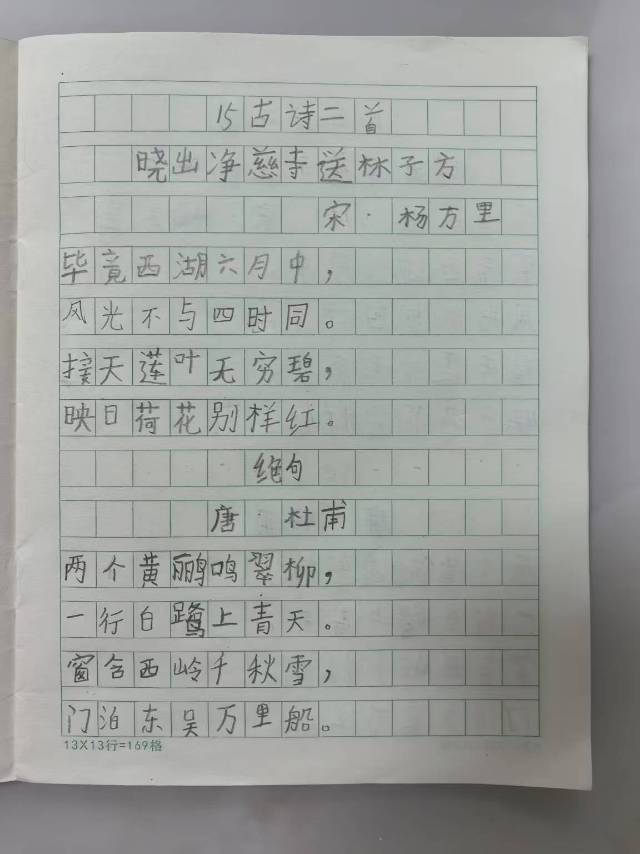 15古诗二首
晓出净慈寺送林子方
宋·杨万里
毕竟西湖六月中，
风光不与四时同。
接天莲叶无穷碧，
映日荷花别样红。
绝句
唐·杜甫
两个黄鹂鸣翠柳，
一行白鹭上青天。
窗含西岭千秋雪，
门泊东吴万里船。
13X13行=169格